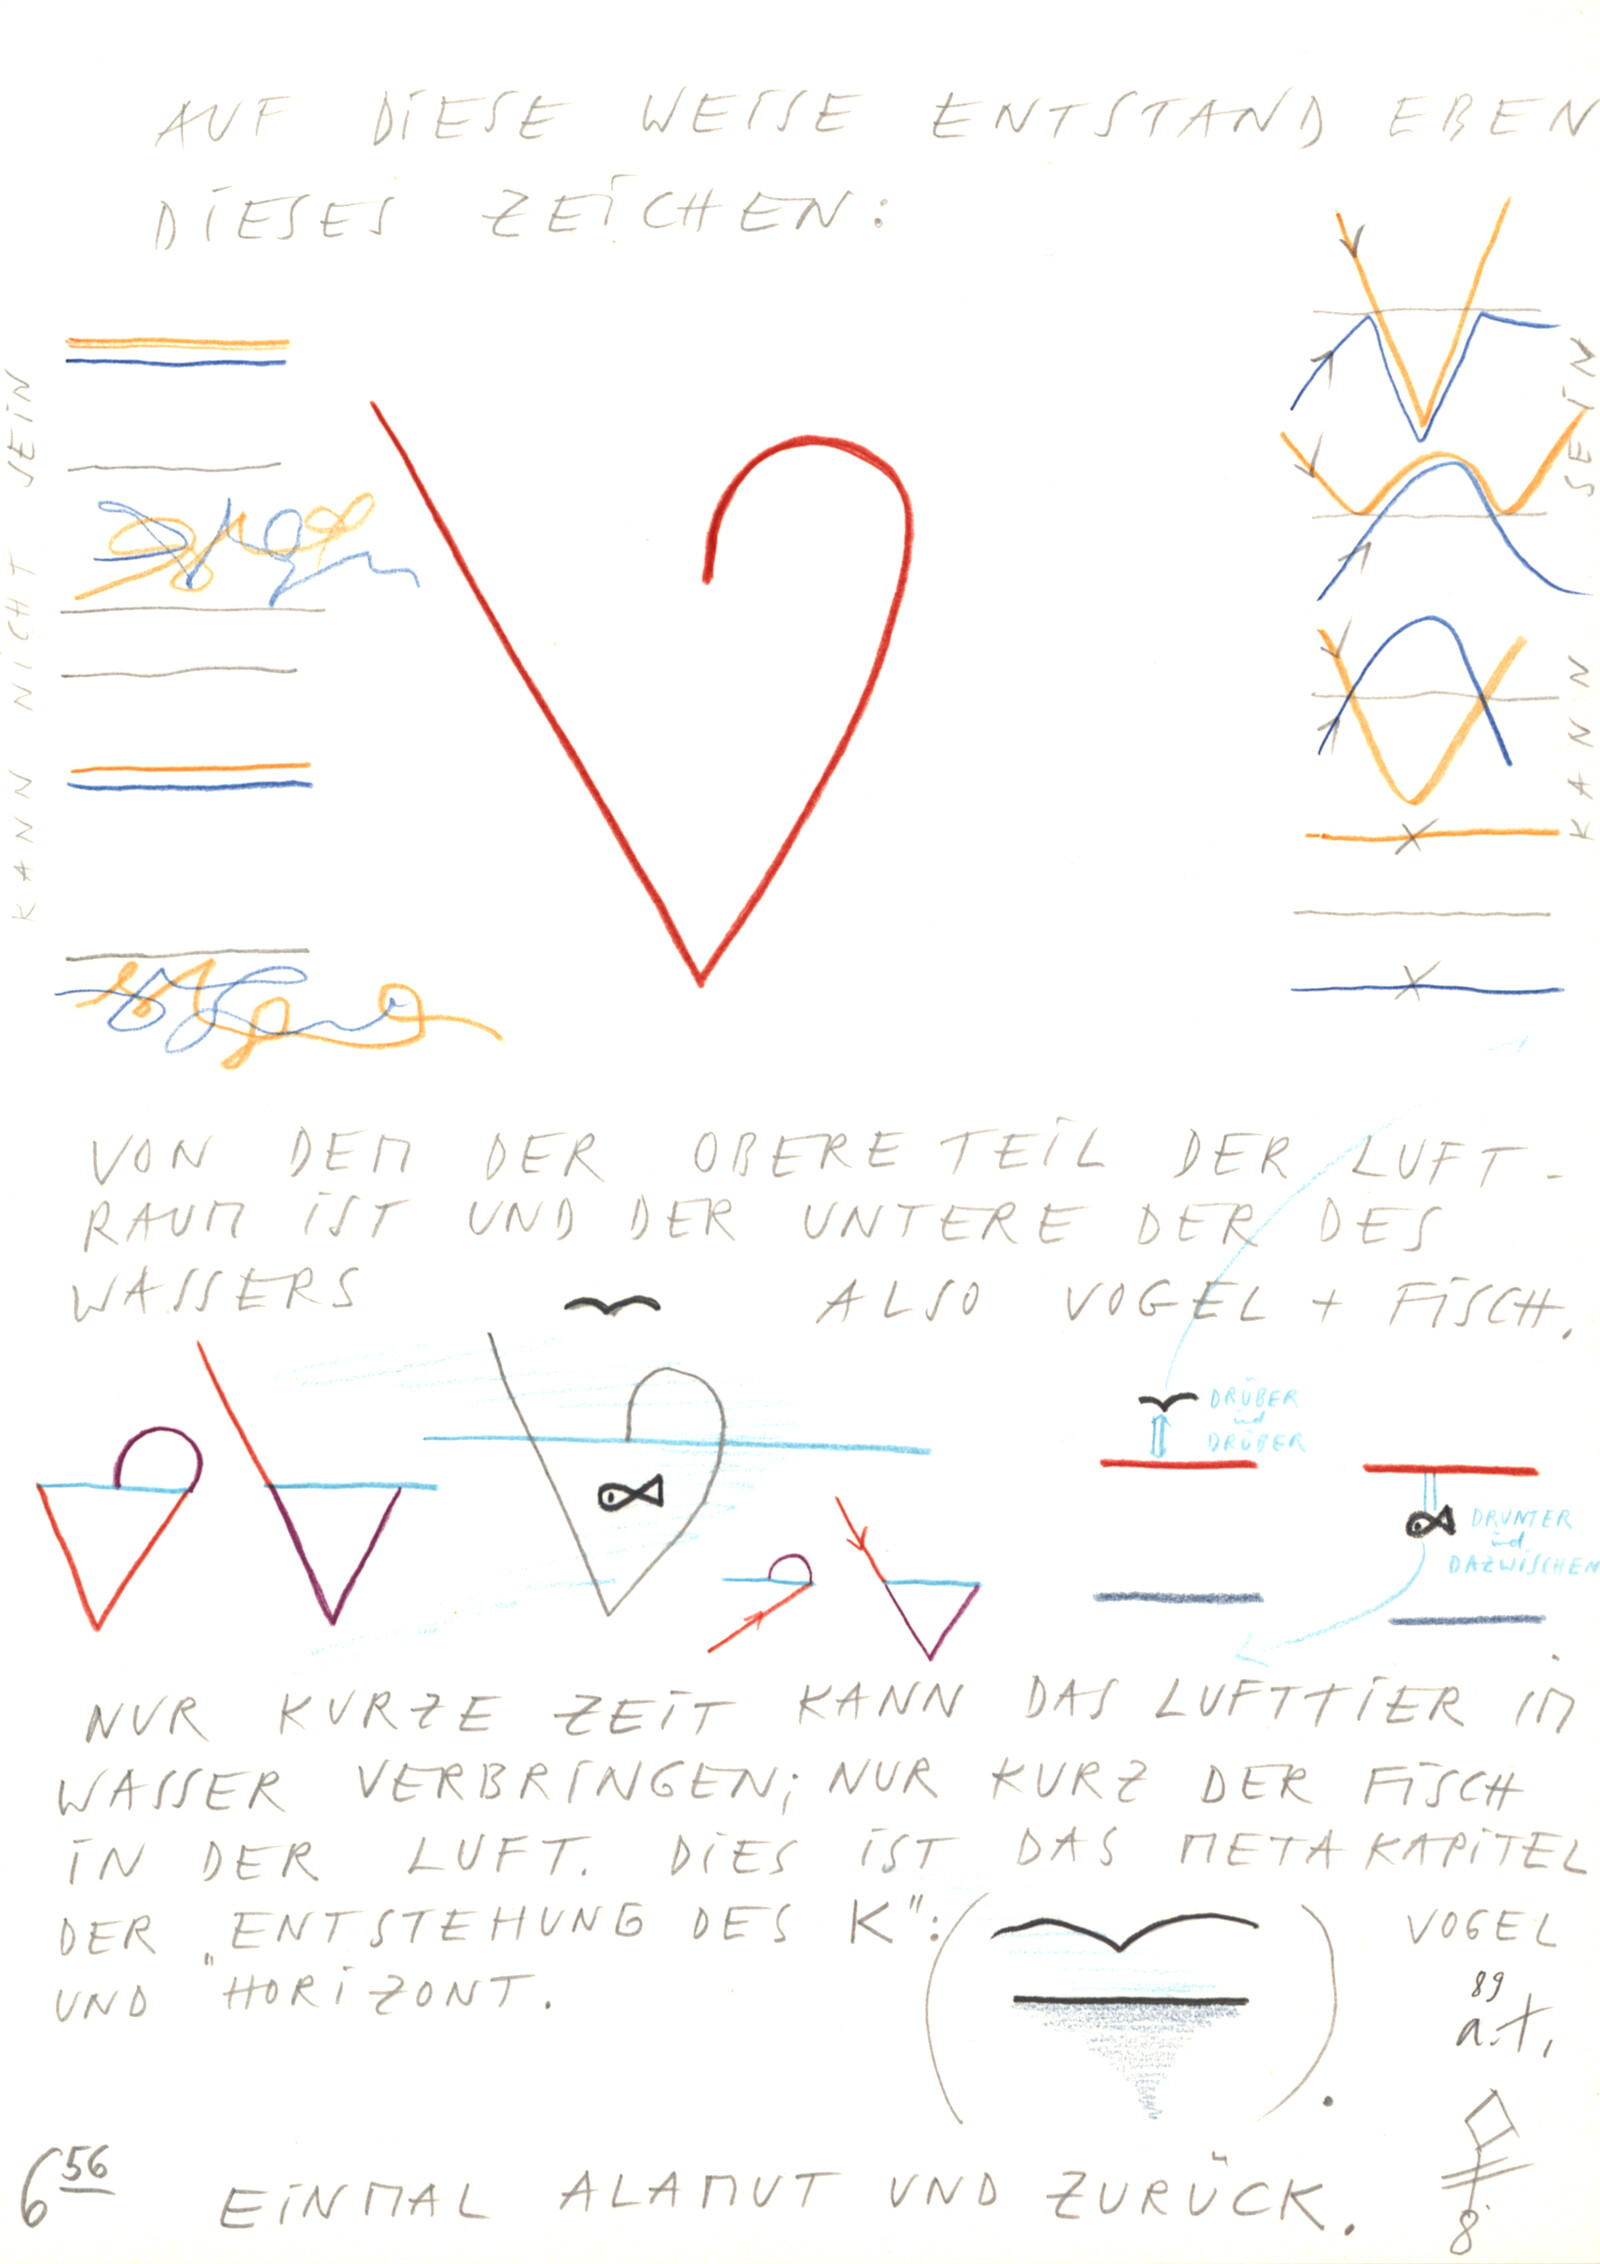 AUF DIESE WEISE ENTSTAND EBEN
DIESES ZEICHEN:
KANN NICHT SEIN
KANN SEIN
VON DEM DER OBERE TEIL DER LUFT-
RAUM IST UND DER UNTERE DER DES
WASSERS ALSO VOGEL + FISCH.
DRÜBER
und
DRÜBER
DRUNTER
und
DAZWISCHEN
NUR KURZE ZEIT KANN DAS LUFTTIER IM
WASSER VERBRINGEN; NUR KURZ DER FISCH
IN DER LUFT. DIES IST DAS METAKAPITEL
DER „ENTSTEHUNG DES K":
UND "HORIZONT.
VOGEL
89
a.t.
6 56 EINMAL ALAMUT UND ZURÜCK.
8